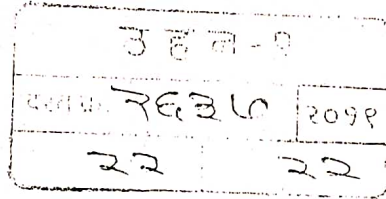 उ ह न - १
दस्त क्र. २६३७ २०११
२२ २२